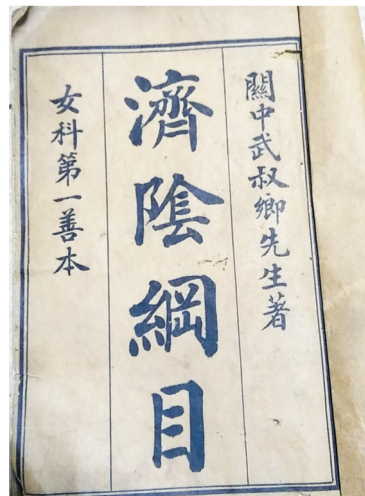 關中武叔卿先生著
濟陰綱目
女科第一善本